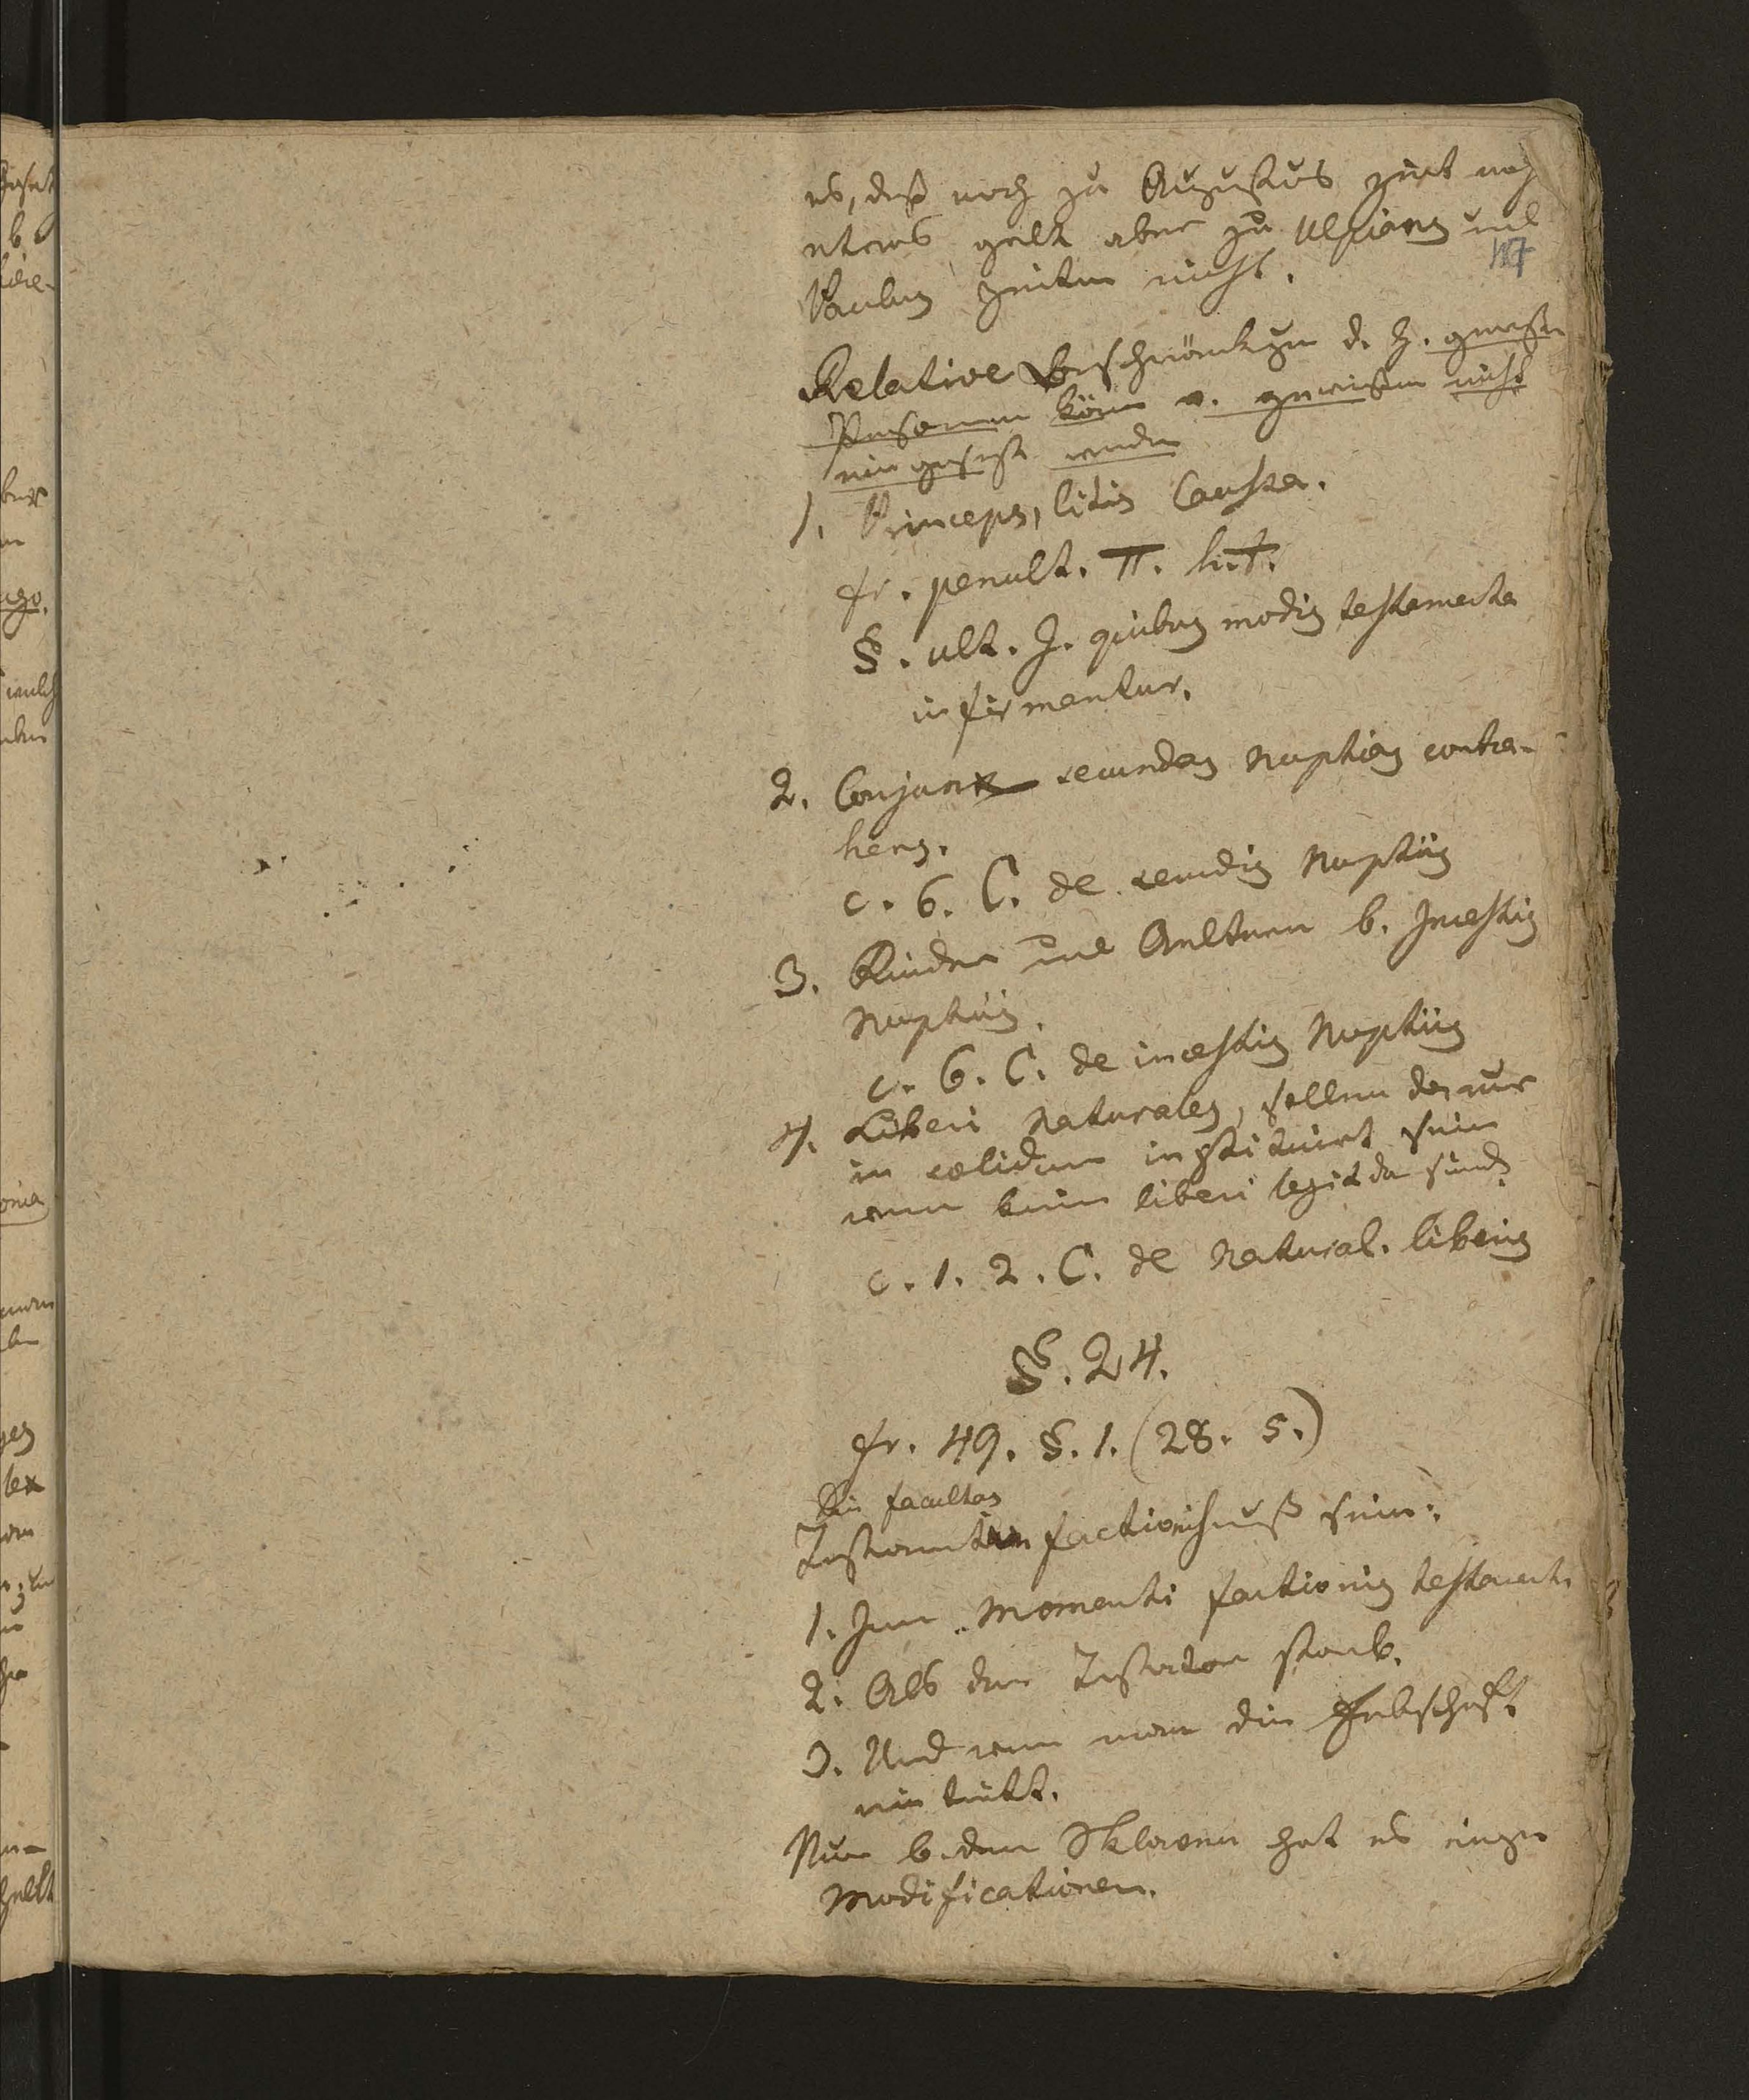 es, daß noch zu Augustus Zeit noch
etwas galt aber zu Ulpians und
117
Paulus Zeiten nicht.
Relative Beschränkungen d. h. gewiße
Personen könen v. gewißen nicht
eingesetzt werden
1. Princeps, litis Causa.
fr. penult. π. h. t.
§. ult. J. quibus modis testamenta
infirmentur.
2. Conjunx secundas Nuptias contra-
hens.
c. 6. C. de secundis Nuptiis
3. Kinder und Aeltern b. Incestis
Nuptiis.
c. 6. C. de incestis Nuptiis
4. Liberi Naturales, sollen da nur
in solidum instituirt sein
wenn keine liberi legit da sind.
c. 1. 2. C. de Natural. liberis
§. 24.
fr. 49. §. 1. (28. 5.)
Die facultas
Testamenti factionis muß sein:
1. Zur Momenti factionis testamenti
2. Als der Testator starb.
3. Und wenn man die Erbschaft
antritt.
Nur b. den Sklaven hat es einige
Modificationen.